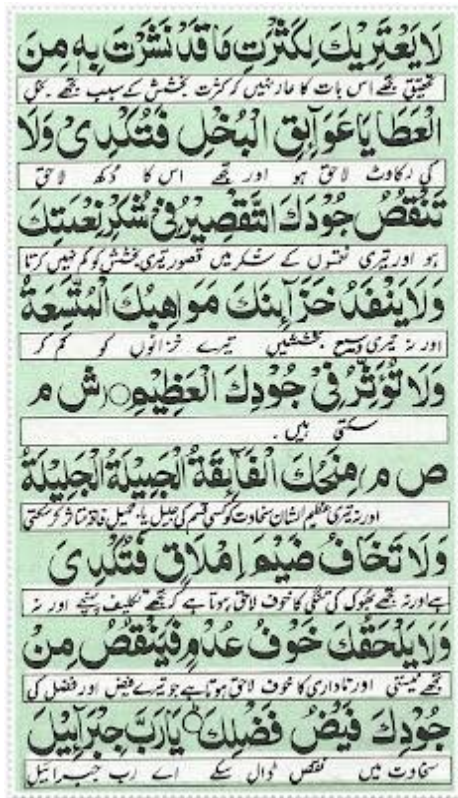 لَا يَعْتَرِيكَ لِكَثْرَتِ مَا قَدْ نَشَرْتَ بِهٖ مِنَ
تحقیق تجھے اس بات کا عار نہیں کہ کثرت بخشش کے سبب تجھے بخل
الْعَطَايَا عَوَآئِقُ الْبُخْلِ فَتُكْدِىْ وَلَا
کی رکاوٹ لاحق ہو اور تجھے اس کا دُکھ لاحق
تَنْقُصُ جُوْدَكَ التَّقْصِيْرُ فِىْ شُكْرِ نِعْمَتِكَ
ہو اور تیری نعمتوں کے شکر میں قصور تیری بخشش کو کم نہیں کرتا
وَلَا يَنْفَدُ خَزَآئِنَكَ مَوَاهِبُكَ الْمُتَّسِعَةُ
اور نہ تیری وسیع بخششیں تیرے خزانوں کو کم کر
وَلَا تُؤَثِّرُ فِىْ جُوْدِكَ الْعَظِيْمِ ○ (ش م
سکتی ہیں۔
ص م) مِنَحُكَ الْفَآئِقَةُ الْجَمِيْلَةُ الْجَلِيْلَةُ
اور نہ تیری عظیم الشان سخاوت کو کسی قسم کی جلیل یا جمیل متاثر کر سکتی
وَلَا تَخَافُ ضَيْمَ اِمْلَاقٍ فَتُكْدِىَ
ہے اور نہ تجھے بھوک کی تنگی کا خوف لاحق ہوتا ہے کہ تجھے تکلیف پہنچے اور نہ
وَلَا يَلْحَقُكَ خَوْفُ عُدْمٍ فَيَنْقُصَ مِنْ
تجھے نیستی اور ناداری کا خوف لاحق ہوتا ہے جو تیرے فیض اور فضل کی
جُوْدِكَ فَيْضُ فَضْلِكَ ○ يَا رَبَّ جِبْرَآئِيْلَ
سخاوت میں نقص ڈال سکے اے رب جبرائیل